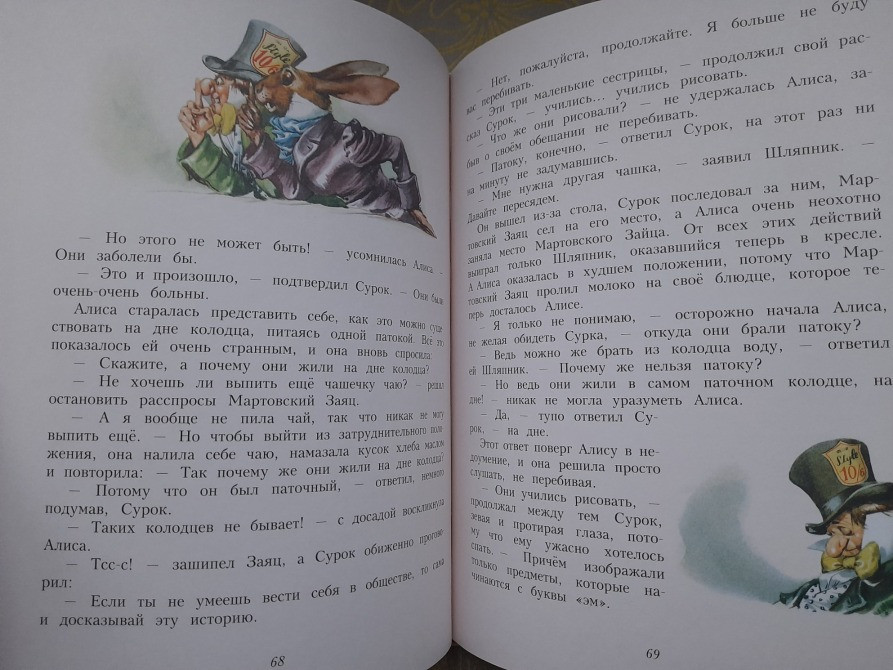 Style
10/6
— Но этого не может быть! — усомнилась Алиса. —
Они заболели бы.
— Это и произошло, — подтвердил Сурок. — Они были
очень-очень больны.
Алиса старалась представить себе, как это можно суще
ствовать на дне колодца, питаясь одной патокой. Всё это
показалось ей очень странным, и она вновь спросила:
— Скажите, а почему они жили на дне колодца?
— Не хочешь ли выпить ещё чашечку чаю? — решил
остановить расспросы Мартовский Заяц.
— А я вообще не пила чай, так что никак не могу
выпить ещё. — Но чтобы выйти из затруднительного поло
жения, она налила себе чаю, намазала кусок хлеба маслом
и повторила: — Так почему же они жили на дне колодца?
— Потому что он был паточный, — ответил, немного
подумав, Сурок.
— Таких колодцев не бывает! — с досадой воскликнула
Алиса.
— Тсс-с! — зашипел Заяц, а Сурок обиженно прогово
рил:
— Если ты не умеешь вести себя в обществе, то сама
и досказывай эту историю.
68
— Нет, пожалуйста, продолжайте. Я больше не буду
вас перебивать.
— Эти три маленькие сестрицы, — продолжил свой рас-
сказ Сурок, — учились... учились рисовать.
— Что же они рисовали? — не удержалась Алиса, за-
быв о своём обещании не перебивать.
— Патоку, конечно, — ответил Сурок, на этот раз ни
на минуту не задумавшись.
— Мне нужна другая чашка, — заявил Шляпник. —
Давайте пересядем.
Он вышел из-за стола, Сурок последовал за ним, Мар-
товский Заяц сел на его место, а Алиса очень неохотно
заняла место Мартовского Зайца. От всех этих действий
выиграл только Шляпник, оказавшийся теперь в кресле.
А Алиса оказалась в худшем положении, потому что Мар-
товский Заяц пролил молоко на своё блюдце, которое те-
перь досталось Алисе.
— Я только не понимаю, — осторожно начала Алиса,
не желая обидеть Сурка, — откуда они брали патоку?
— Ведь можно же брать из колодца воду, — ответил
ей Шляпник. — Почему же нельзя патоку?
— Но ведь они жили в самом паточном колодце, на
дне! — никак не могла уразуметь Алиса.
— Да, — тупо ответил Су-
рок, — на дне.
Этот ответ поверг Алису в не-
доумение, и она решила просто
слушать, не перебивая.
— Они учились рисовать, —
продолжал между тем Сурок,
зевая и протирая глаза, пото-
му что ему ужасно хотелось
спать. — Причём изображали
только предметы, которые на-
чинаются с буквы «эм».
Style
10/6
69